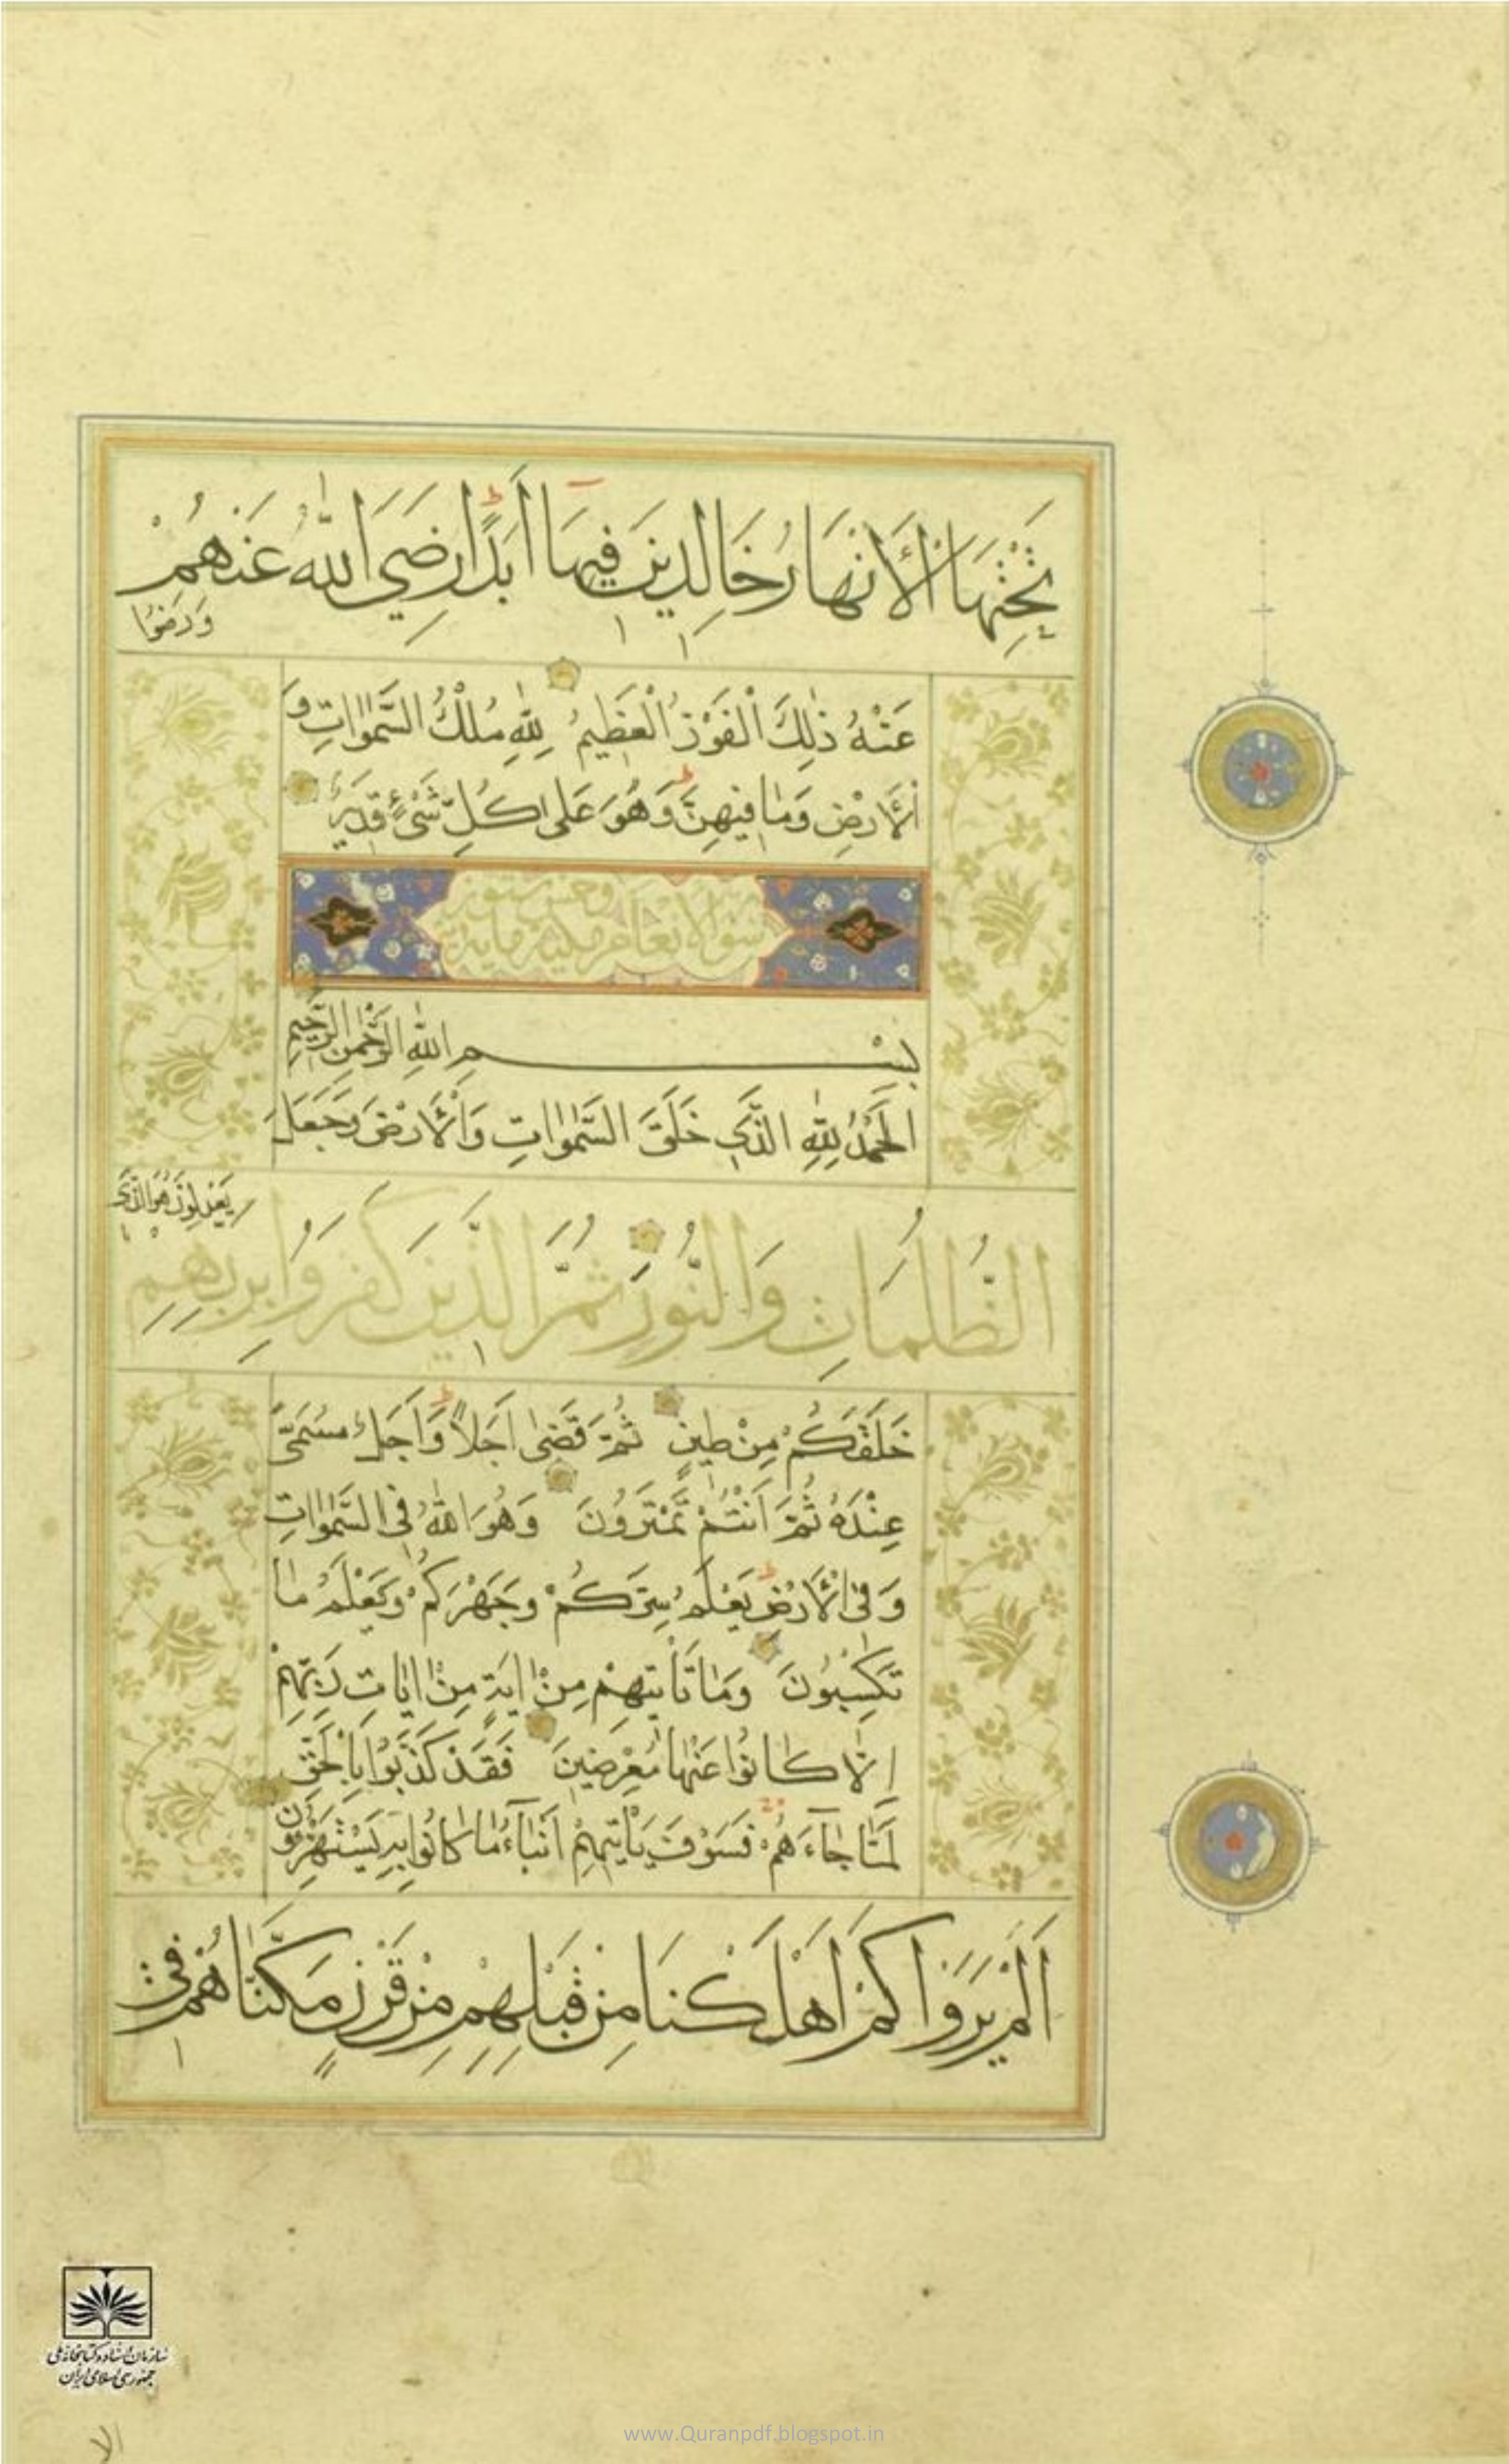 تَحْتِهَا الْأَنْهَارُ خَالِدِينَ فِيهَا أَبَدًا رَضِيَ اللَّهُ عَنْهُمْ
وَرَضُوا
عَنْهُ ذٰلِكَ الْفَوْزُ الْعَظِيمُ لِلّٰهِ مُلْكُ السَّمٰوَاتِ وَ
الْأَرْضِ وَمَا فِيهِنَّ وَهُوَ عَلَى كُلِّ شَيْءٍ قَدِيرٌ
سورة الانعام مكية مائة
وعشر ستون
بِسْمِ اللّٰهِ الرَّحْمٰنِ الرَّحِيمِ
الْحَمْدُ لِلّٰهِ الَّذِي خَلَقَ السَّمٰوَاتِ وَالْأَرْضَ وَجَعَلَ
الظُّلُمَاتِ وَالنُّورَ ثُمَّ الَّذِينَ كَفَرُوا بِرَبِّهِمْ
يَعْدِلُونَ هُوَ الَّذِي
خَلَقَكُمْ مِنْ طِينٍ ثُمَّ قَضٰى أَجَلًا وَأَجَلٌ مُسَمًّى
عِنْدَهُ ثُمَّ أَنْتُمْ تَمْتَرُونَ وَهُوَ اللّٰهُ فِي السَّمٰوَاتِ
وَفِي الْأَرْضِ يَعْلَمُ سِرَّكُمْ وَجَهْرَكُمْ وَيَعْلَمُ مَا
تَكْسِبُونَ وَمَا تَأْتِيهِمْ مِنْ اٰيَةٍ مِنْ اٰيَاتِ رَبِّهِمْ
إِلَّا كَانُوا عَنْهَا مُعْرِضِينَ فَقَدْ كَذَّبُوا بِالْحَقِّ
لَمَّا جَآءَهُمْ فَسَوْفَ يَأْتِيهِمْ أَنْبَآءُ مَا كَانُوا بِهِ يَسْتَهْزِؤُنَ
أَلَمْ يَرَوْا كَمْ أَهْلَكْنَا مِنْ قَبْلِهِمْ مِنْ قَرْنٍ مَكَّنَّاهُمْ فِي
سازمان اسناد و کتابخانه ملی
جمهوری اسلامی ایران
الا
www.Quranpdf.blogspot.in